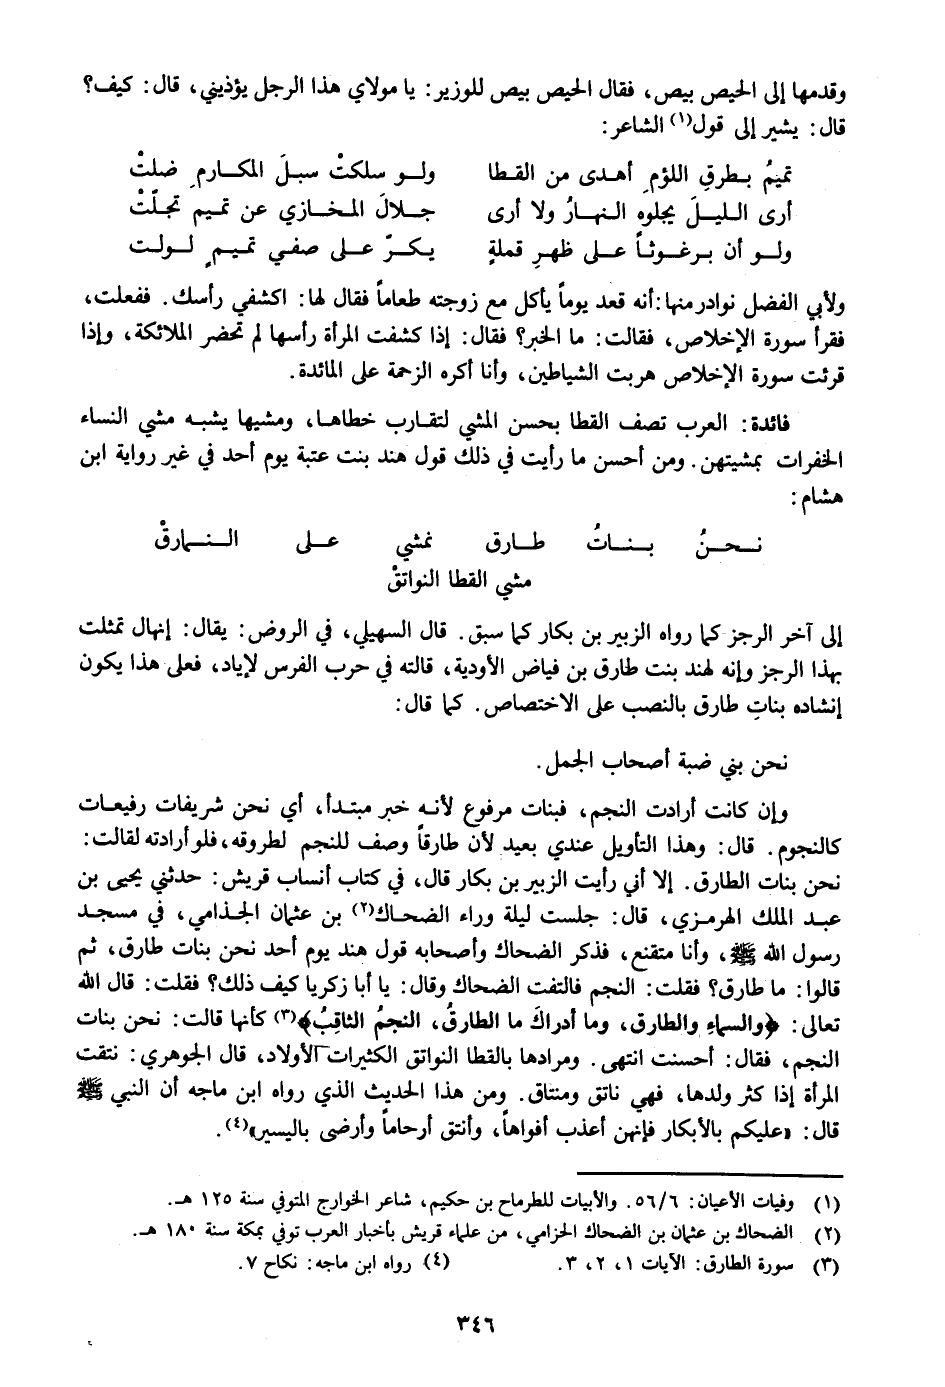 وقدمها إلى الحيص بيص، فقال الحيص بيص للوزير: يا مولاي هذا الرجل يؤذيني، قال: كيف؟
قال: يشير إلى قول(١) الشاعر:
تميمُ بطرقِ اللؤمِ أهدى من القطا ولو سلكتْ سبلَ المكارمِ ضلتْ
أرى الليلَ يجلوه النهارُ ولا أرى جلالَ المخازي عن تميم تجلّتْ
ولو أن برغوثاً على ظهرِ قملةٍ يكرّ على صفي تميمٍ لولت
ولأبي الفضل نوادر منها: أنه قعد يوماً يأكل مع زوجته طعاماً فقال لها: اكشفي رأسك. ففعلت،
فقرأ سورة الإخلاص، فقالت: ما الخبر؟ فقال: إذا كشفت المرأة رأسها لم تحضر الملائكة، وإذا
قرئت سورة الإخلاص هربت الشياطين، وأنا أكره الزحمة على المائدة.
فائدة: العرب تصف القطا بحسن المشي لتقارب خطاها، ومشيها يشبه مشي النساء
الخفرات بمشيتهن. ومن أحسن ما رأيت في ذلك قول هند بنت عتبة يوم أحد في غير رواية ابن
هشام:
نحنُ بناتُ طارق نمشي على النمارقْ
مشي القطا النواتقْ
إلى آخر الرجز كما رواه الزبير بن بكار كما سبق. قال السهيلي، في الروض: يقال: إنهال تمثلت
بهذا الرجز وإنه لهند بنت طارق بن فياض الأودية، قالته في حرب الفرس لإياد، فعلى هذا يكون
إنشاده بناتِ طارق بالنصب على الاختصاص. كما قال:
نحن بني ضبة أصحاب الجمل.
وإن كانت أرادت النجم، فبنات مرفوع لأنه خبر مبتدأ، أي نحن شريفات رفيعات
كالنجوم. قال: وهذا التأويل عندي بعيد لأن طارقاً وصف للنجم لطروقه، فلو أرادته لقالت:
نحن بنات الطارق. إلا أني رأيت الزبير بن بكار قال، في كتاب أنساب قريش: حدثني يحيى بن
عبد الملك الهرمزي، قال: جلست ليلة وراء الضحاك(٢) بن عثمان الجذامي، في مسجد
رسول الله ﷺ، وأنا متقنع، فذكر الضحاك وأصحابه قول هند يوم أحد نحن بنات طارق، ثم
قالوا: ما طارق؟ فقلت: النجم فالتفت الضحاك وقال: يا أبا زكريا كيف ذلك؟ فقلت: قال الله
تعالى: ﴿والسماءِ والطارق، وما أدراكَ ما الطارقُ، النجمُ الثاقِبُ﴾(٣) كأنها قالت: نحن بنات
النجم، فقال: أحسنت انتهى. ومرادها بالقطا النواتق الكثيرات الأولاد، قال الجوهري: نتقت
المرأة إذا كثر ولدها، فهي ناتق ومنتاق. ومن هذا الحديث الذي رواه ابن ماجه أن النبي ﷺ
قال: «عليكم بالأبكار فإنهن أعذب أفواهاً، وأنتق أرحاماً وأرضى باليسير»(٤).
(١) وفيات الأعيان: ٥٦/٦. والأبيات للطرماح بن حكيم، شاعر الخوارج المتوفي سنة ١٢٥ هـ.
(٢) الضحاك بن عثمان بن الضحاك الحزامي، من علماء قريش بأخبار العرب توفي بمكة سنة ١٨٠ هـ.
(٣) سورة الطارق: الآيات ١، ٢، ٣. (٤) رواه ابن ماجه: نكاح ٧.
٣٤٦